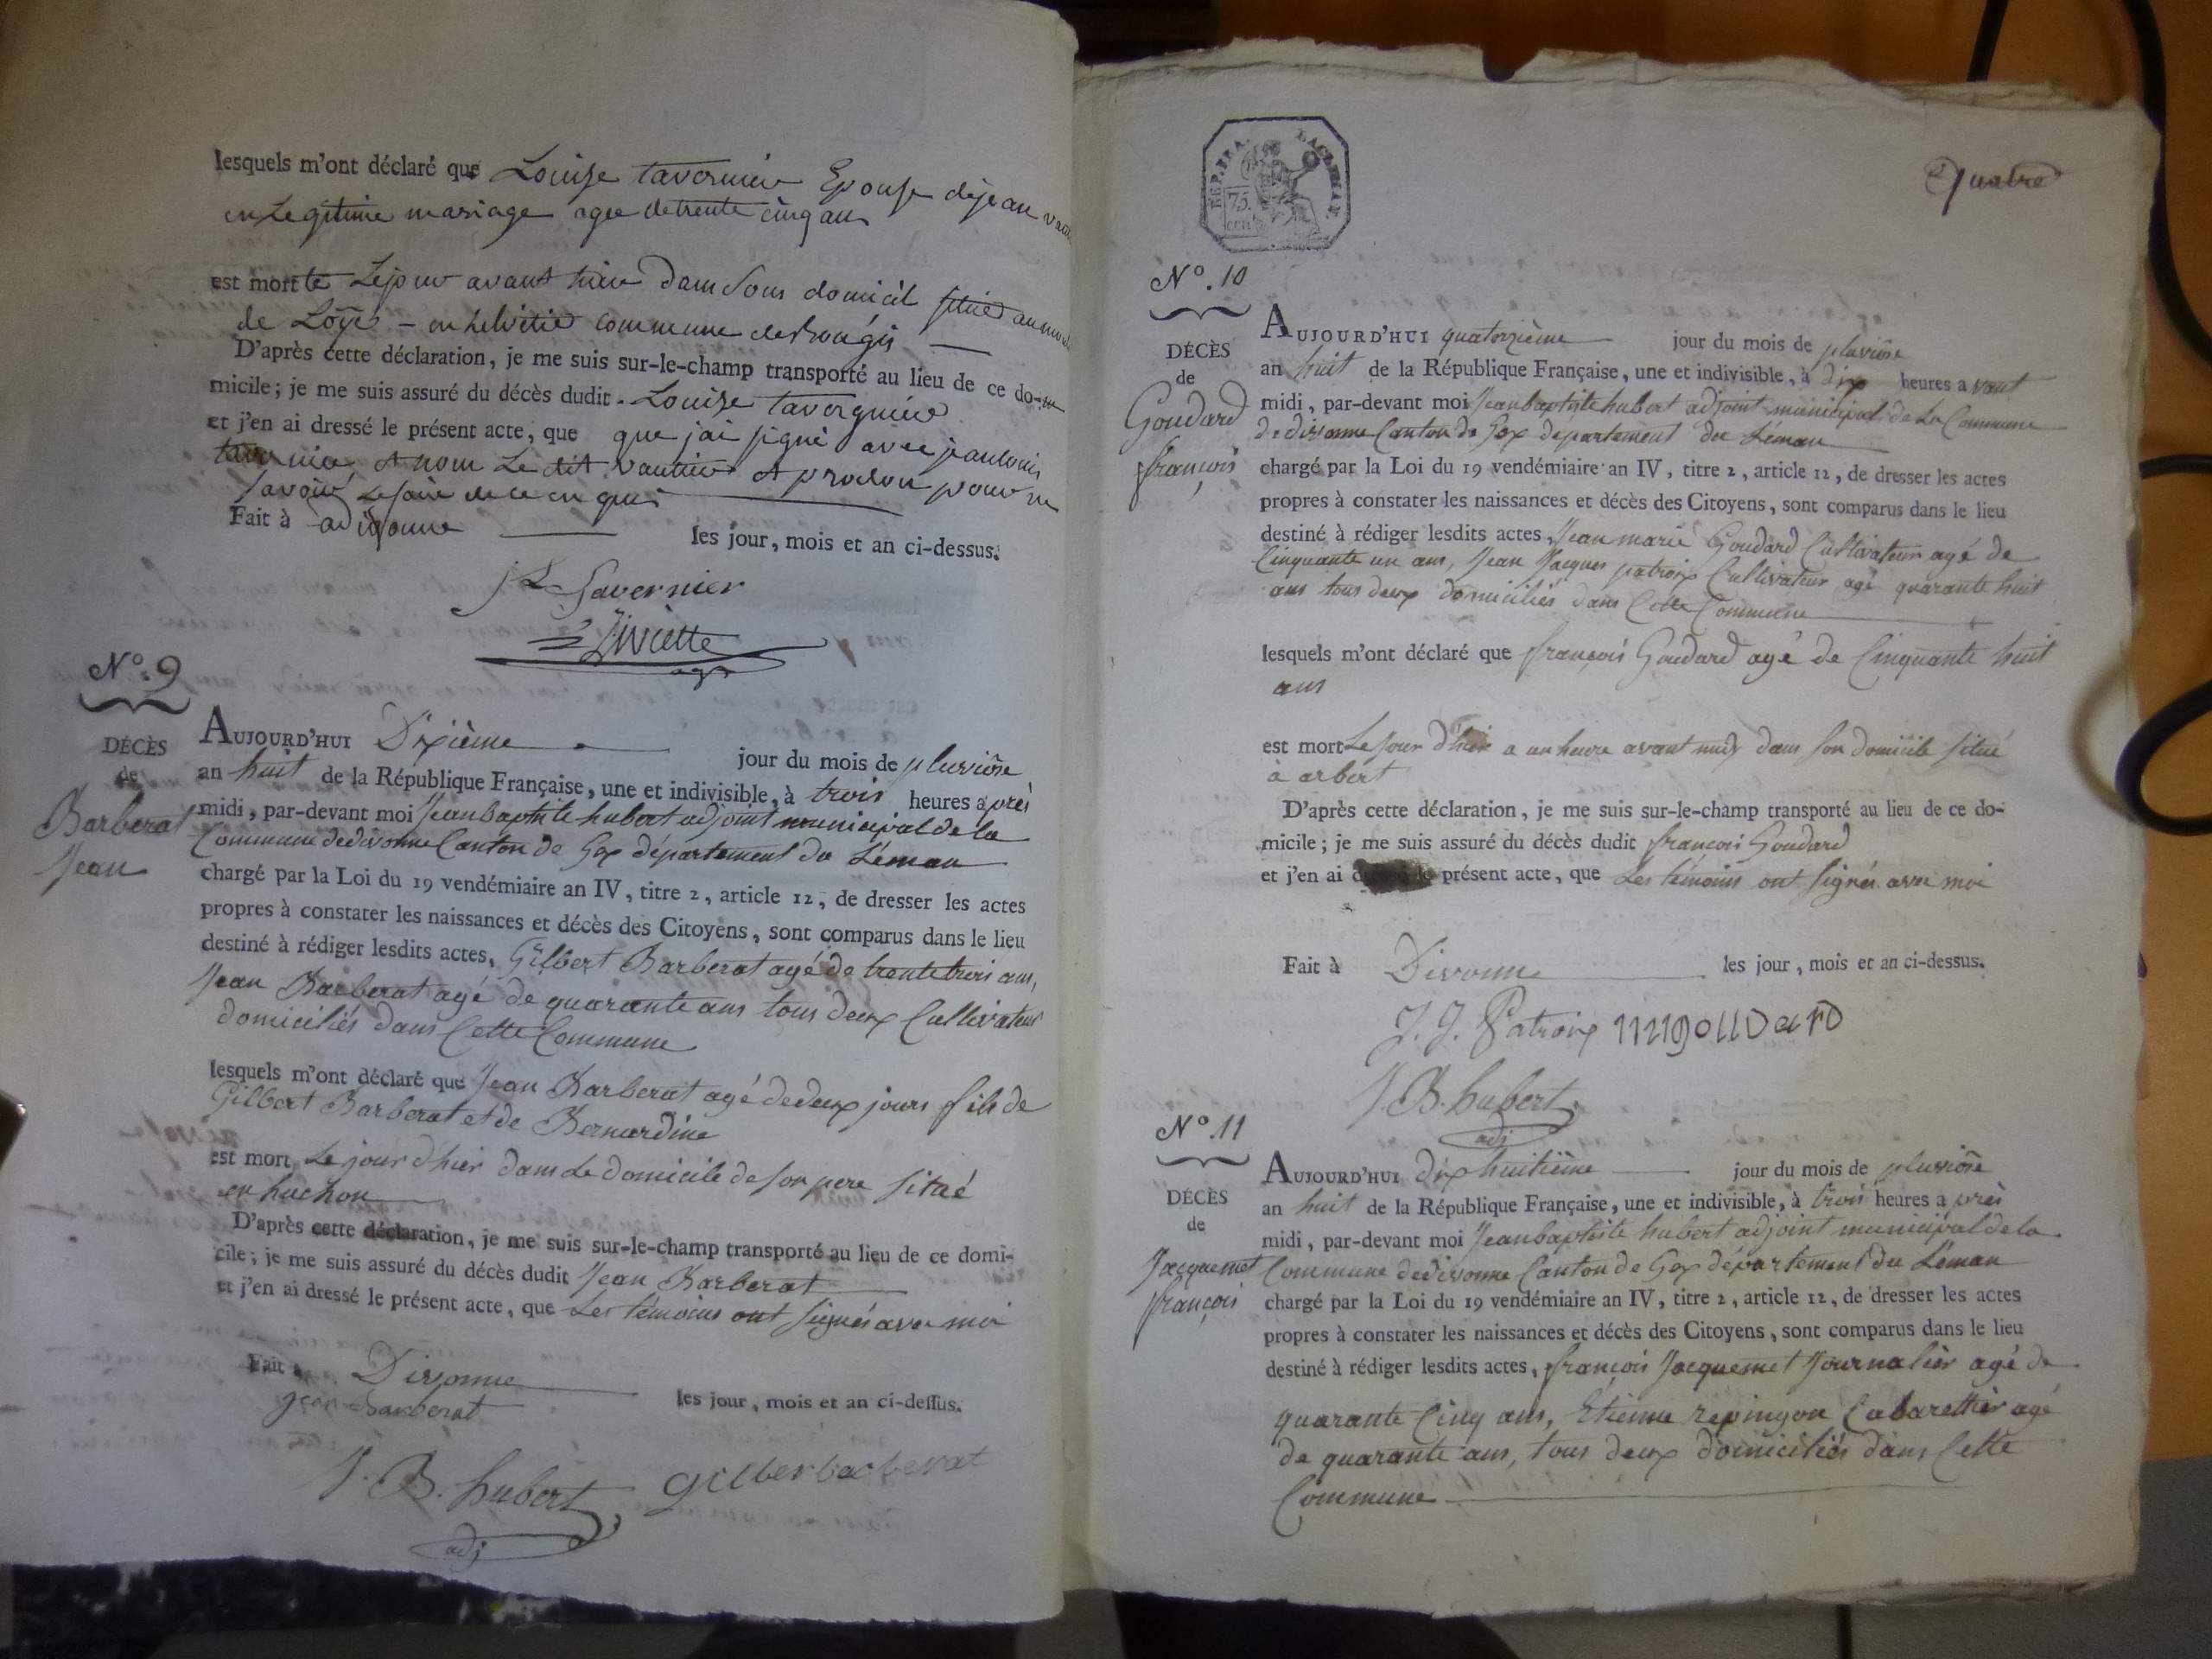 lesquels m'ont déclaré que Louise taverniér Epouse dejean
en Legitime mariage agee detrente cinq ans
est mort te Lejour avant hier dans sons domicil situé
de Loÿes - en helvétié commune debougis
D'après cette déclaration, je me suis sur-le-champ transporté au lieu de ce do-
micile; je me suis assuré du décès dudit Louise
et j'en ai dressé le présent acte, que que jai signé avec jeanlouis
et nom Le dit vautier et prodon pour ne
savoir Lefaire de ce en quis
Fait à adivonne les jour, mois et an ci-dessus.
J L Tavernier
N°. 9
DÉCÈS
de
Barberat
Jean
AUJOURD'HUI Dixième jour du mois de pluviôse
an huit de la République Française, une et indivisible, à trois heures après
midi, par-devant moi Jean baptiste hubert adjoint municipal de la
Commune dedivonne Canton de Gex département du Léman
chargé par la Loi du 19 vendémiaire an IV, titre 2, article 12, de dresser les actes
propres à constater les naissances et décès des Citoyens, sont comparus dans le lieu
destiné à rédiger lesdits actes, Gilbert Barberat agé de trente trois ans,
Jean Barberat agé de quarante ans tous deux Cultivateurs
domiciliés dans Cette Commune
lesquels m'ont déclaré que Jean Barberat agé dedeux jours fils de
Gilbert Barberat et de Bernardine
est mort Le jour d'hier dans Le domicile de son pere situé
en huchon
D'après cette déclaration, je me suis sur-le-champ transporté au lieu de ce domi-
cile; je me suis assuré du décès dudit Jean Barberat
et j'en ai dressé le présent acte, que Les témoins ont signés avec moi
Fait à Divonne les jour, mois et an ci-dessus.
jean Barberat
J. B. hubert gilber barberat
adj
Quatre
REP. FRA.
75
cent
N°. 10
DÉCÈS
de
Goudard
françois
AUJOURD'HUI quatorzième jour du mois de pluviôse
an huit de la République Française, une et indivisible, à dix heures avant
midi, par-devant moi Jean baptiste hubert adjoint municipal de La Commune
de divonne Canton de Gex departement du Léman
chargé par la Loi du 19 vendémiaire an IV, titre 2, article 12, de dresser les actes
propres à constater les naissances et décès des Citoyens, sont comparus dans le lieu
destiné à rédiger lesdits actes, Jean marie Goudard Cultivateur agé de
Cinquante un ans, Jean Jacques patroix Cultivateur agé quarante huit
ans tous deux domiciliés dans Cette Commune
lesquels m'ont déclaré que françois Goudard agé de Cinquante huit
ans
est mort Le Jour d'hier a un heure avant midy dans son domicile situé
à arbert
D'après cette déclaration, je me suis sur-le-champ transporté au lieu de ce do-
micile; je me suis assuré du décès dudit françois Goudard
et j'en ai présent acte, que Les témoins ont signés avec moi
Fait à Divonne les jour, mois et an ci-dessus.
J. J. Patroix
J. B. hubert
adj
N°. 11
DÉCÈS
de
Jacquemet
françois
AUJOURD'HUI dix huitième jour du mois de pluviôse
an huit de la République Française, une et indivisible, à trois heures après
midi, par-devant moi Jean baptiste hubert adjoint municipal de la
Commune dedivonne Canton de Gex département du Léman
chargé par la Loi du 19 vendémiaire an IV, titre 2, article 12, de dresser les actes
propres à constater les naissances et décès des Citoyens, sont comparus dans le lieu
destiné à rédiger lesdits actes, françois Jacquemet Journalier agé de
quarante Cinq ans, Etienne repingon Cabarettier agé
de quarante ans, tous deux domiciliés dans Cette
Commune